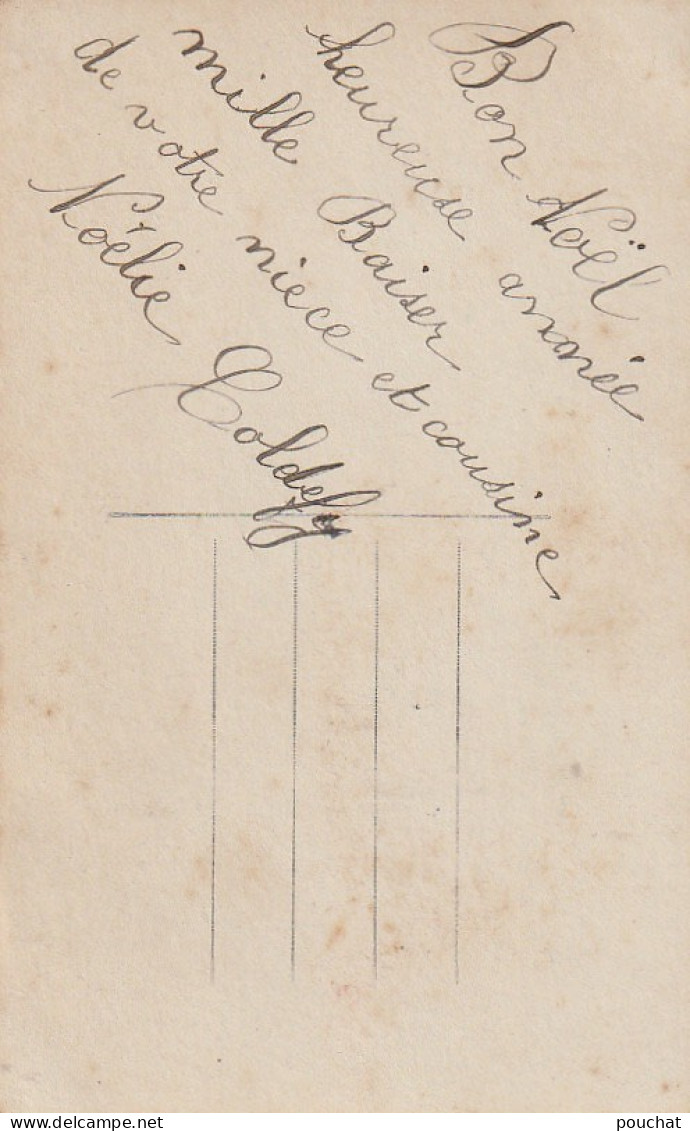 Bon Noël
heureuse année
mille Baiser
de votre niece et cousine
Noélie Coldefy
pouchat